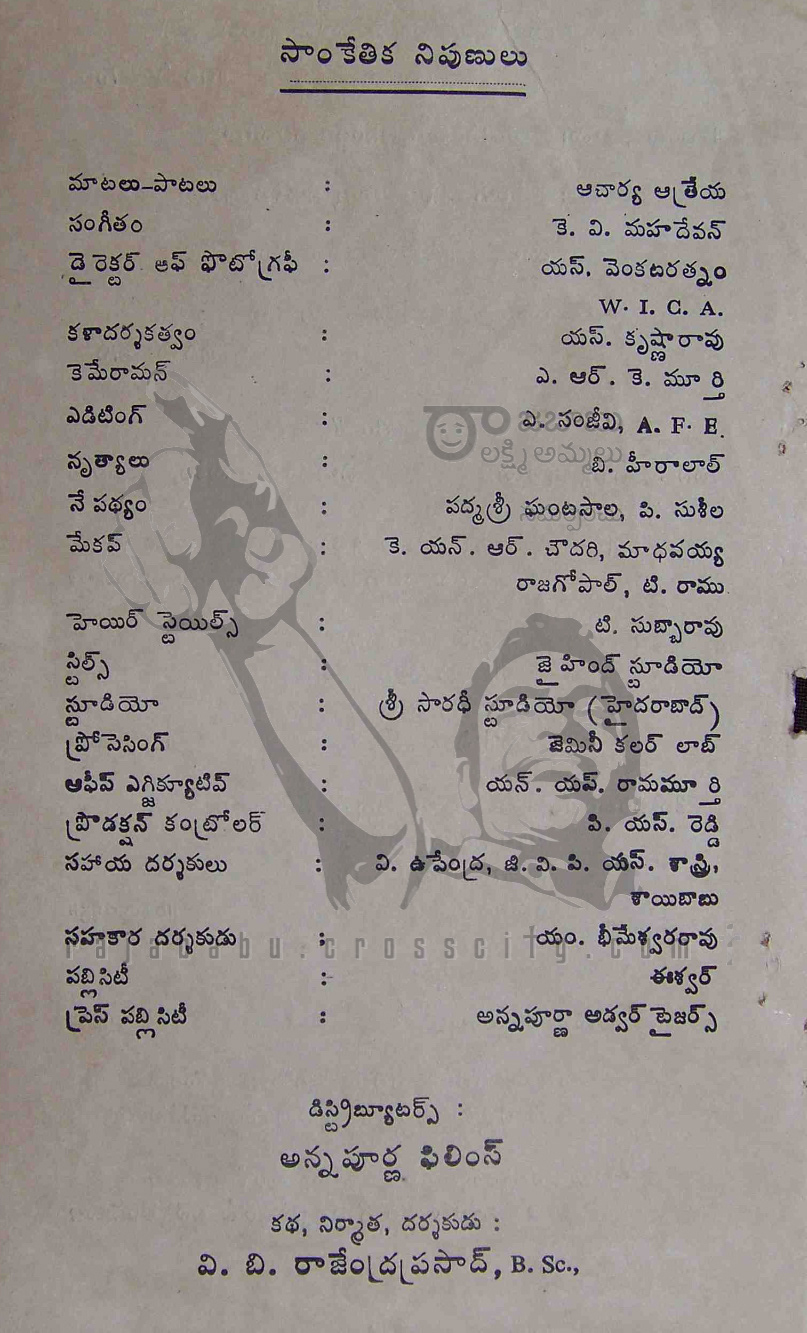 సాంకేతిక నిపుణులు
మాటలు-పాటలు : ఆచార్య ఆత్రేయ
సంగీతం : కె. వి. మహదేవన్
డైరెక్టర్ ఆఫ్ ఫొటోగ్రఫీ : యస్. వెంకటరత్నం
W. I. C. A.
కళాదర్శకత్వం : యస్. కృష్ణారావు
కెమేరామన్ : ఎ. ఆర్. కె. మూర్తి
ఎడిటింగ్ : ఎ. సంజీవి, A. F. E.
నృత్యాలు : బి. హీరాలాల్
నేపథ్యం : పద్మశ్రీ ఘంటసాల, పి. సుశీల
మేకప్ : కె. యన్. ఆర్. చౌదరి, మాధవయ్య
రాజగోపాల్, టి. రాము
హెయిర్ స్టైయిల్స్ : టి. సుబ్బారావు
స్టిల్స్ : జైహింద్ స్టూడియో
స్టూడియో : శ్రీ సారధీ స్టూడియో (హైదరాబాద్)
ప్రోసెసింగ్ : జెమినీ కలర్ లాబ్
ఆఫీస్ ఎగ్జిక్యూటివ్ : యన్. యస్. రామమూర్తి
ప్రొడక్షన్ కంట్రోలర్ : పి. యస్. రెడ్డి
సహాయ దర్శకులు : వి. ఉపేంద్ర, జి. వి. పి. యస్. శాస్త్రి,
శాయిబాబు
సహకార దర్శకుడు : యం. భీమేశ్వరరావు
rajababu.crosscity.com
పబ్లిసిటీ : ఈశ్వర్
ప్రెస్ పబ్లిసిటీ : అన్నపూర్ణా అడ్వర్టైజర్స్
డిస్ట్రిబ్యూటర్స్ :
అన్నపూర్ణ ఫిలింస్
కథ, నిర్మాత, దర్శకుడు :
వి. బి. రాజేంద్రప్రసాద్, B. Sc.,